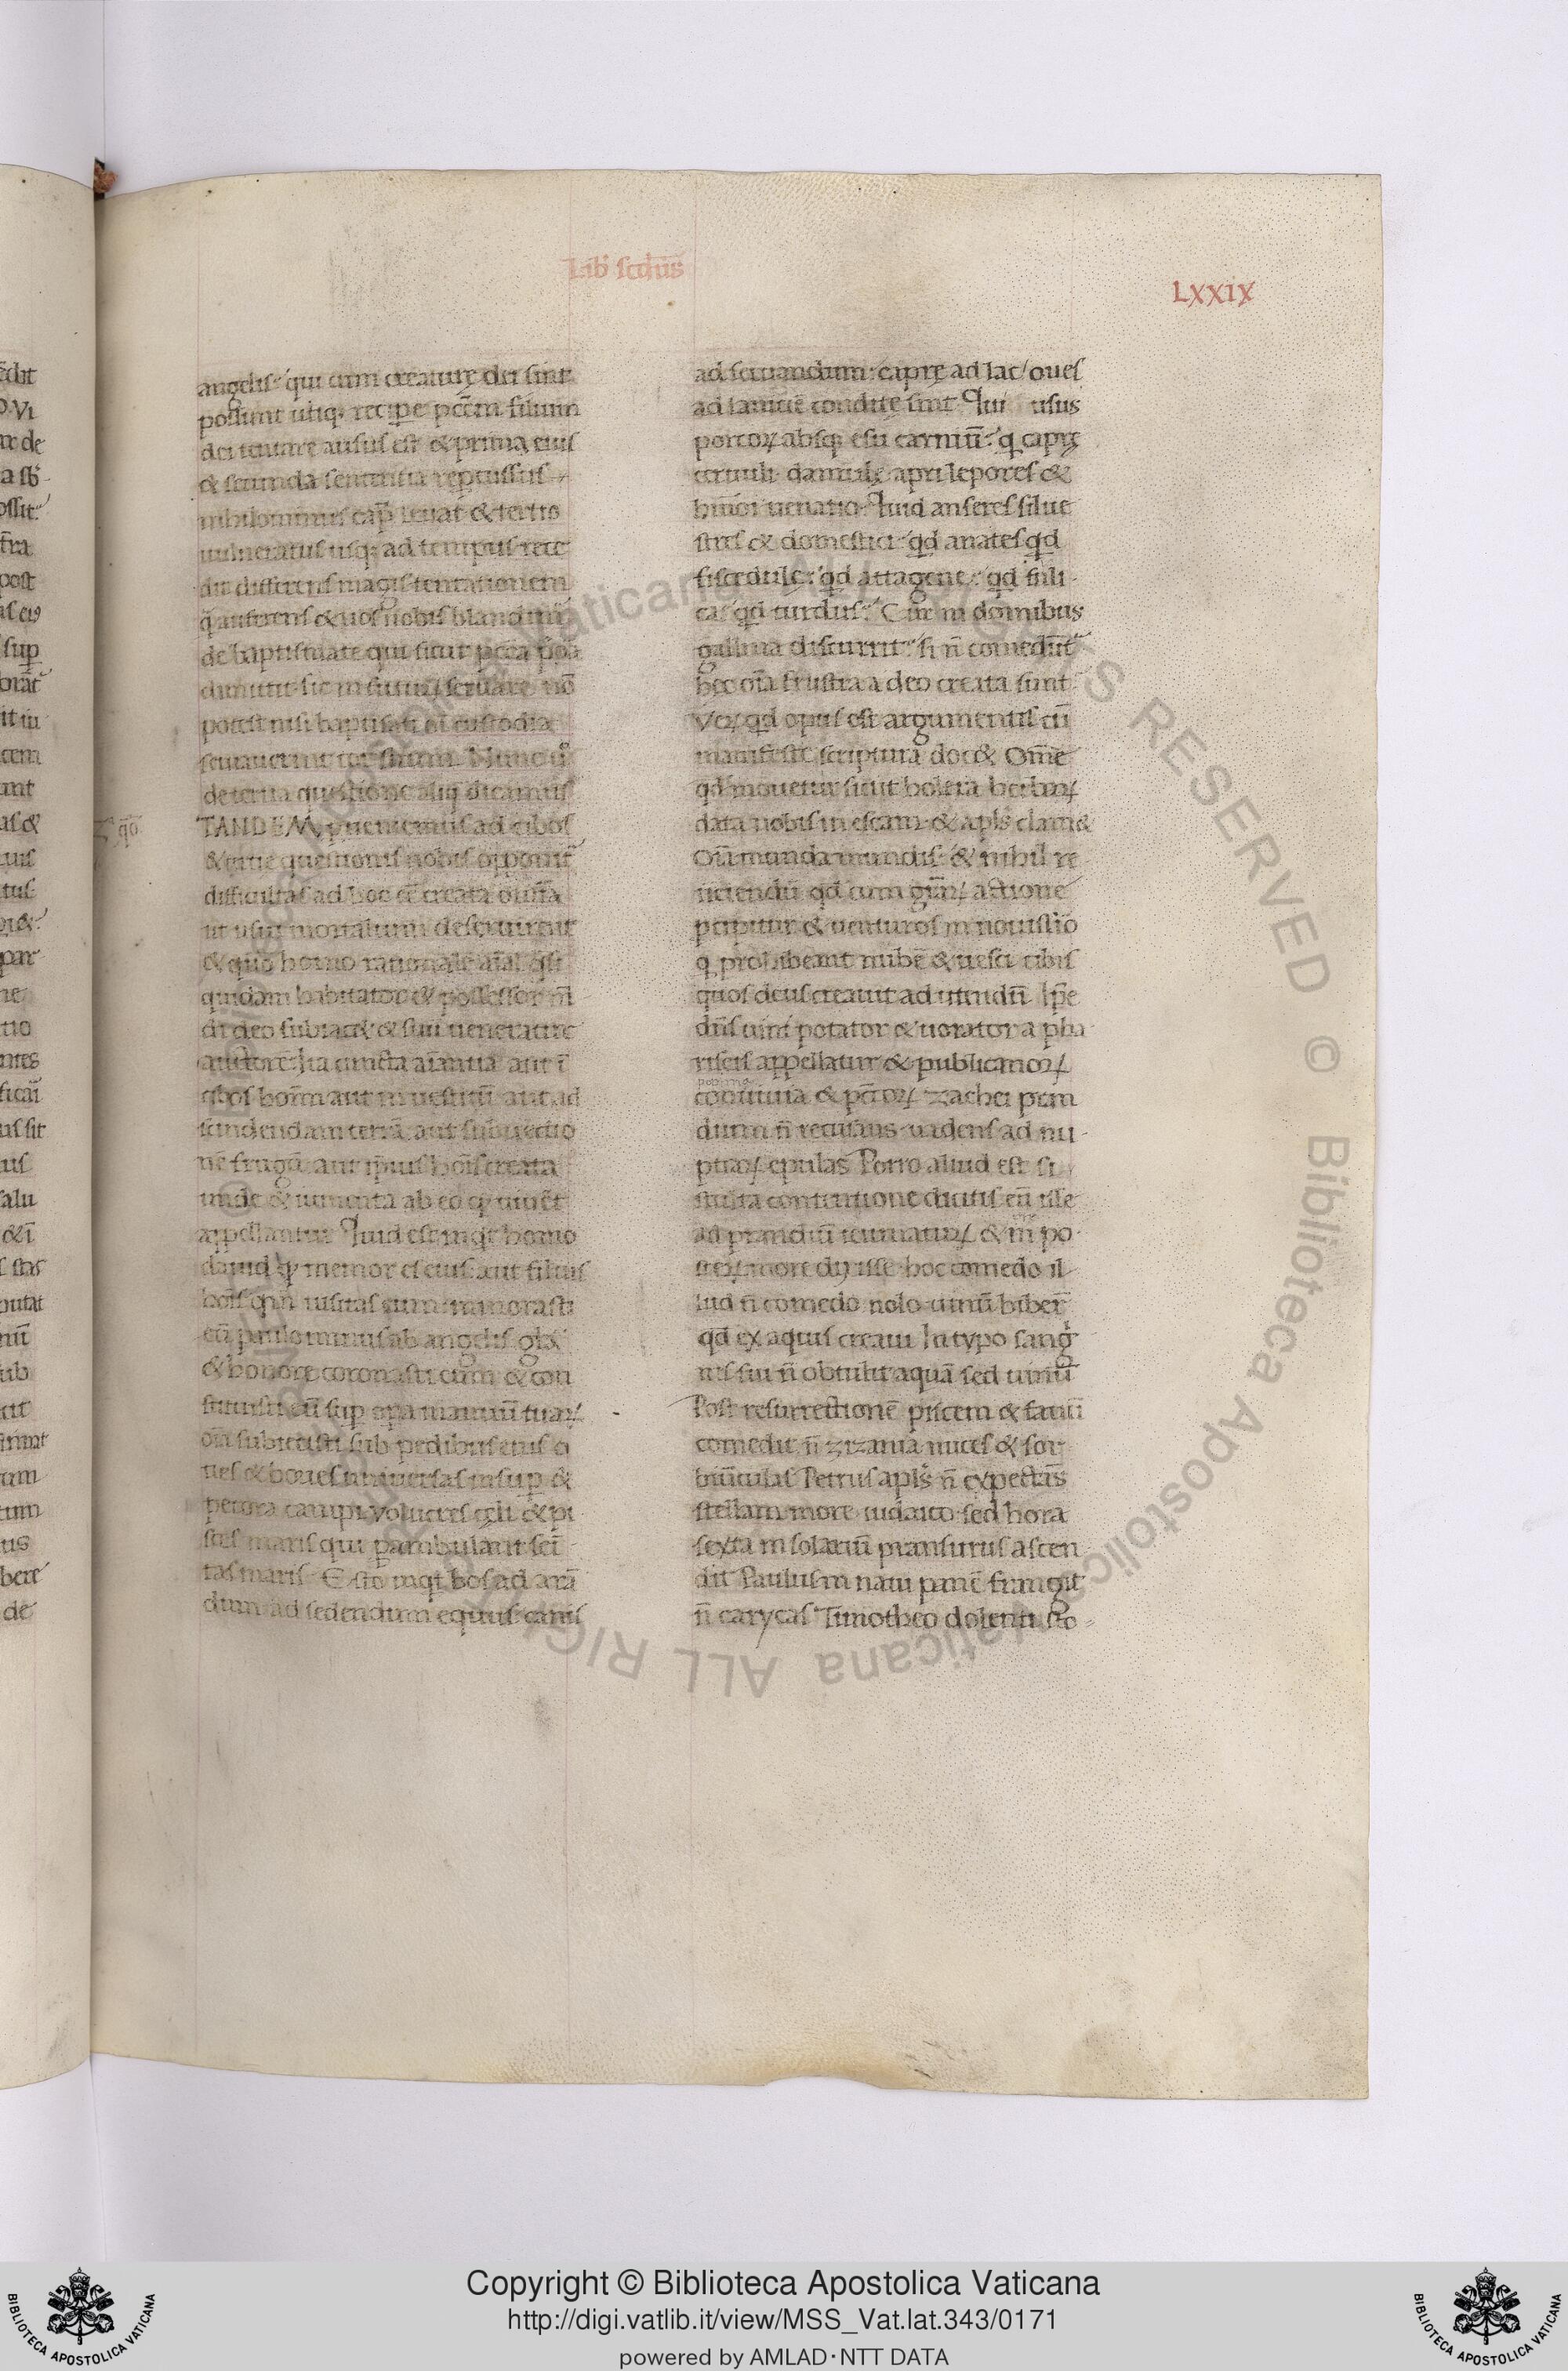 Lib' scd̄us
Lxxix
angelis: qui cum creaturę dei sint
possunt utiq; recipe pcc̄m filium
dei temtare ausus est & prima eius
& secunda sententia repcussus
nihilominus cap̄ leuat & tertio
uulneratus usq; ad tempus rece
dit differens magis tentationem
q̄ auferens & nos nobis blandimur
de baptismate qui sicut pcc̄a p̄ōa
dimittit sic in futurꝝ seruare nō
potest nisi baptisati oī custodia
seruauerint cor suum. Nunc qͦ
de tertia questione aliq̄ dicamus
qō
TANDEM pueniemus ad cibos
& tertie questionis nobis opponit̄
difficultas ad hoc cē creata omīa
ut usui mortalium deseruirent
& quō homo rationale aīal q̄si
quidam habitator & possessor m̄
di deo subiacet & suū ueneratur
auctorē ita cuncta aīantia aut ī
cibos hoīm aut in uestitū aut ad
scindendam terrā aut subuectio
nē frugū aut ipsius hoīs creata
unde & iumenta ab eo qꝫ iuuēt
appellantur Quid est inqt homo
dauid qꝫ memor es eius: aut filius
hoīs qm̄ uisitas eum: minorasti
eū paulo minus ab angelis gl̄a
& honore coronasti eum & con
stituisti eū sup opa manuū tuaꝝ
oīa subiecisti sub pedibus eius o
ues & boues uniuersas insup &
pecora campi uolucres cęli & pi
sces maris qui pambulant sēi
tas maris. Esto inqt bos ad arā
dum ad sedendum equus: canis
ad seruandum: caprę ad lac/oues
ad laniciē condite sint Qui usus
porcoꝝ absq; esu carniū? q̄ caprę
ceruuli damulę apri lepores &
huīoi uenatio Quid anseres silue
stres & domestici: qd anates qd
ficedulę: qd attagene: qd fuli
ca: qd turdus? Cur in domibus
gallina discurrit? si n̄ comedūt̄
hec oīa frustra a deo creata sunt
Veꝝ qd opus est argumentis cū
manifeste scriptura docet Om̄e
qd mouetur sicut holera herbaꝝ
data nobis in escam. & apl̄s clamet
Oīa munda mundis: & nihil re
iiciendū qd cum gr̄aꝝ actione
pcipitur & uenturos in nouissīo
q prohibeant nubē & uesci cibis
quos deus creauit ad utendū Ip̄e
dn̄s uini potator & uorator a pha
riseis appellatur & publicanoꝝ
conuiuia & pcc̄oꝝ zachei pran
dium n̄ recusans uadens ad nu
ptiaꝝ epulas Porro aliud est si
stulta contentione dicitis eū isse
ad prandiū ieiunatuꝝ & in̄ po
steꝝ more dixisse hoc comedo il
lud n̄ comedo nolo uinū biber̄
qd ex aquis creaui In typo sang̍
nis sui n̄ obtulit aquā sed uinū
Post resurrectionē piscem & fauū
comedit n̄ zizania nuces & sor
biūculas Petrus apl̄s n̄ expectās
stellam more iudaico sed hora
sexta in solariū pransurus ascen
dit Paulus in naui panē frangit
n̄ carycas Timotheo dolenti sto
Copyright © Biblioteca Apostolica Vaticana
http://digi.vatlib.it/view/MSS_Vat.lat.343/0171
powered by AMLAD·NTT DATA